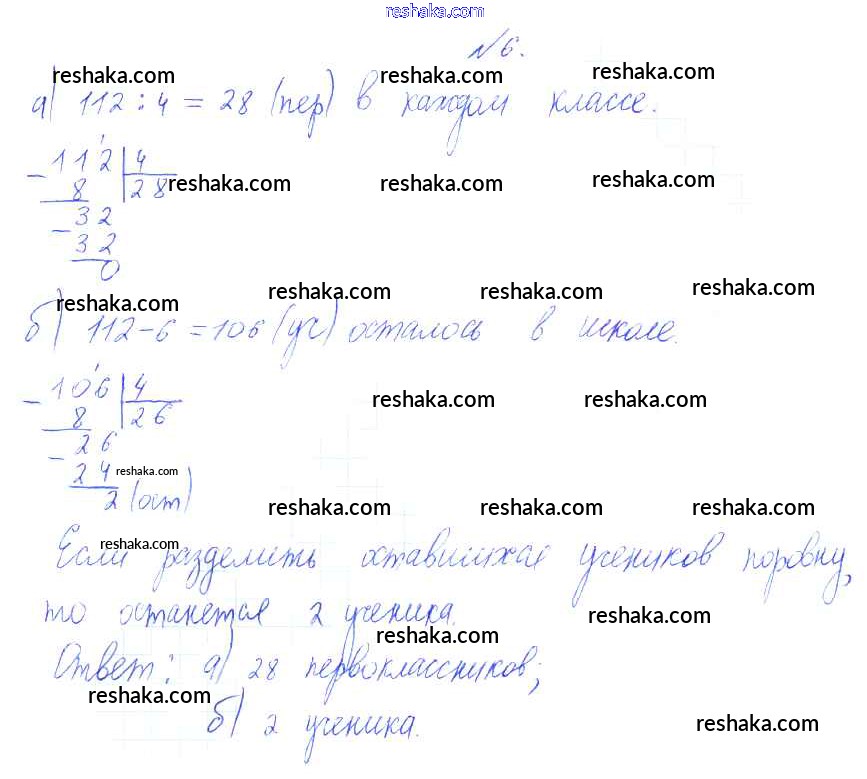 reshaka.com
№ 6.
reshaka.com reshaka.com reshaka.com
а) 112 : 4 = 28 (пер) в каждом классе.
- 112 | 4
reshaka.com reshaka.com reshaka.com
8 | 28
- 32
32
0
reshaka.com reshaka.com reshaka.com reshaka.com
б) 112 - 6 = 106 (уч) осталось в школе.
- 106 | 4
reshaka.com reshaka.com
8 | 26
- 26
24 reshaka.com
2 (ост)
reshaka.com reshaka.com reshaka.com
reshaka.com
Если разделить оставшихся учеников поровну,
то останется 2 ученика.
reshaka.com reshaka.com
Ответ: а) 28 первоклассников;
reshaka.com
б) 2 ученика.
reshaka.com